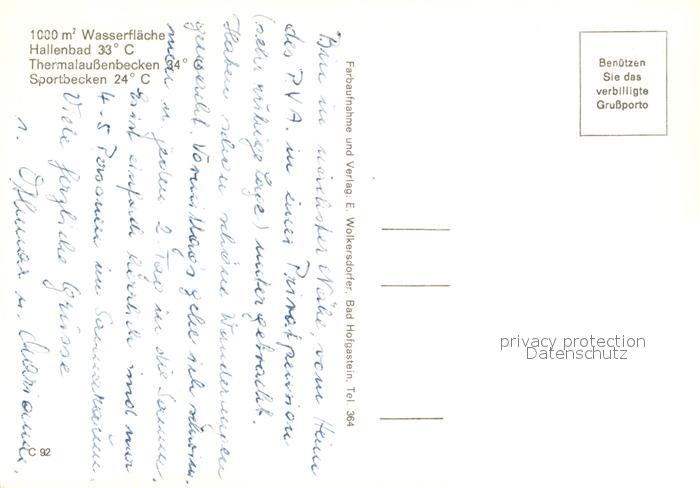 1000 m² Wasserfläche
Hallenbad 33° C
Thermalaußenbecken 34° C
Sportbecken 24° C
Benützen
Sie das
verbilligte
Grußporto
Farbaufnahme und Verlag: E. Wolkersdorfer, Bad Hofgastein, Tel. 364
Bin in nächster Nähe, vom Heim
des P.V.A. in einer Privatpension
(sehr ruhige Lage) untergebracht.
Haben schon schöne Wanderungen
gemacht. Vormittags gehe ich schwim-
men u. jeden 2. Tag in die Sauna.
Es ist einfach herrlich sind nur
4-5 Personen im Saunaraum.
Viele herzliche Grüsse
Othmar u. Marianne.
C 92
privacy protection
Datenschutz